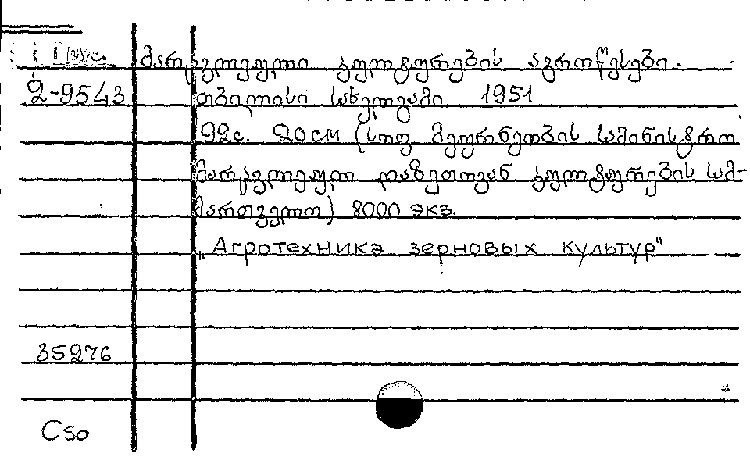 მარცვლეული კულტურების აგროწესები.
2-9543 თბილისი სახელგამი 1951
92с. 20см (სოფ. მეურნეობის სამინისტრო.
მარცვლეულ და ზეთოვან კულტურების სამ-
მართველო) 8000 экз.
"Агротехника зерновых культур"
35276
Cso